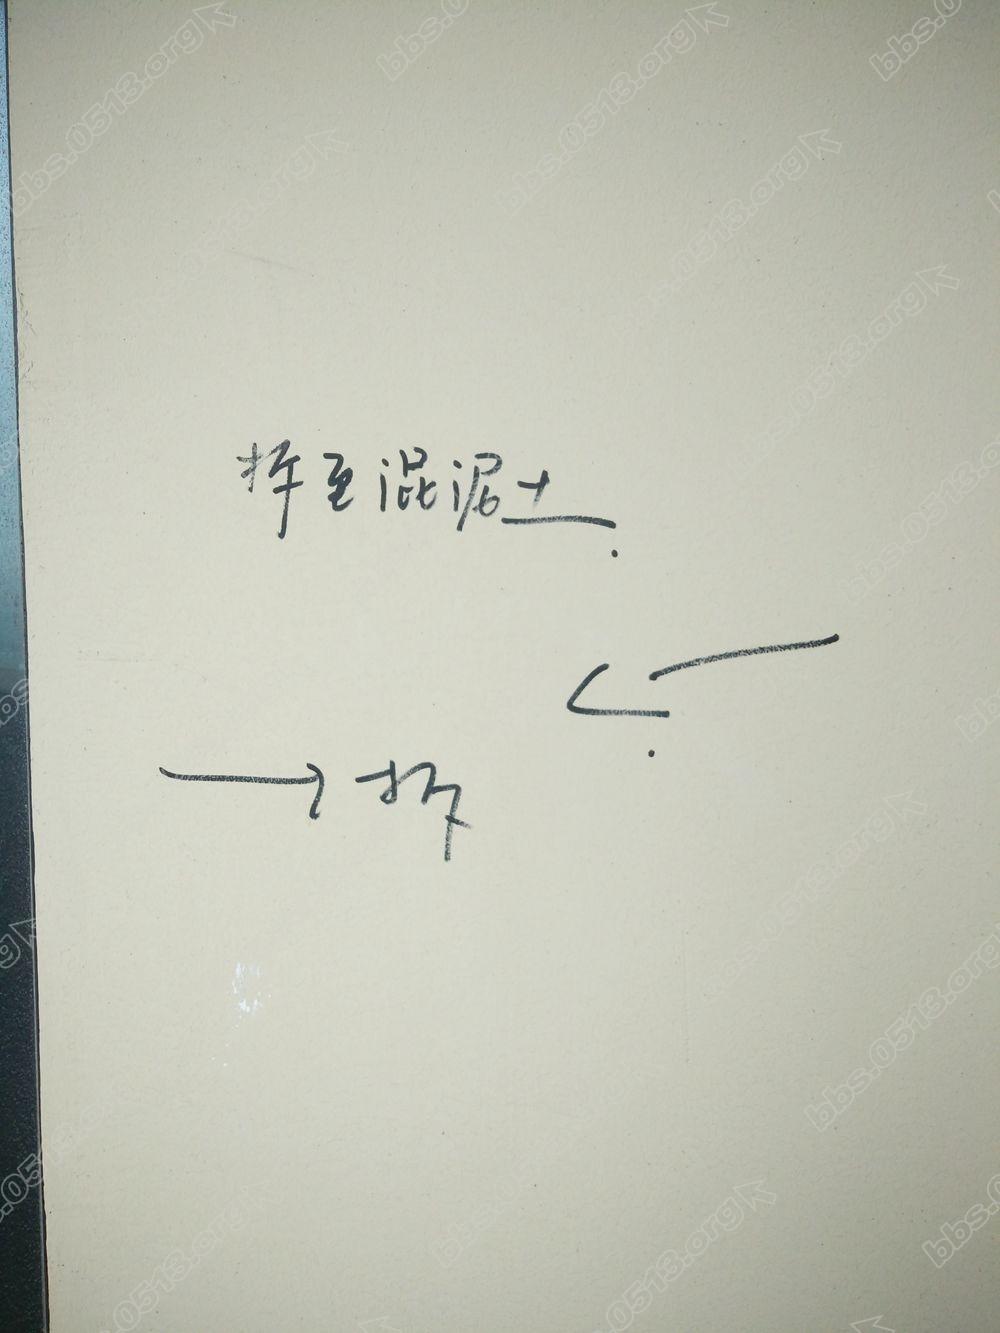 拆至混泥土.
←
→拆
bbs.0513.org